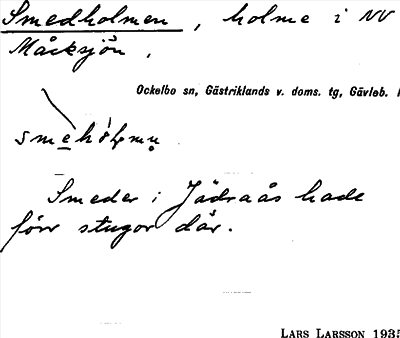 Smedholmen, holme i NV
Måcksjön.
Ockelbo sn, Gästriklands v. doms. tg, Gävleb.
Smeder i Jädraås hade
förr stugor där.
LARS LARSSON 1935